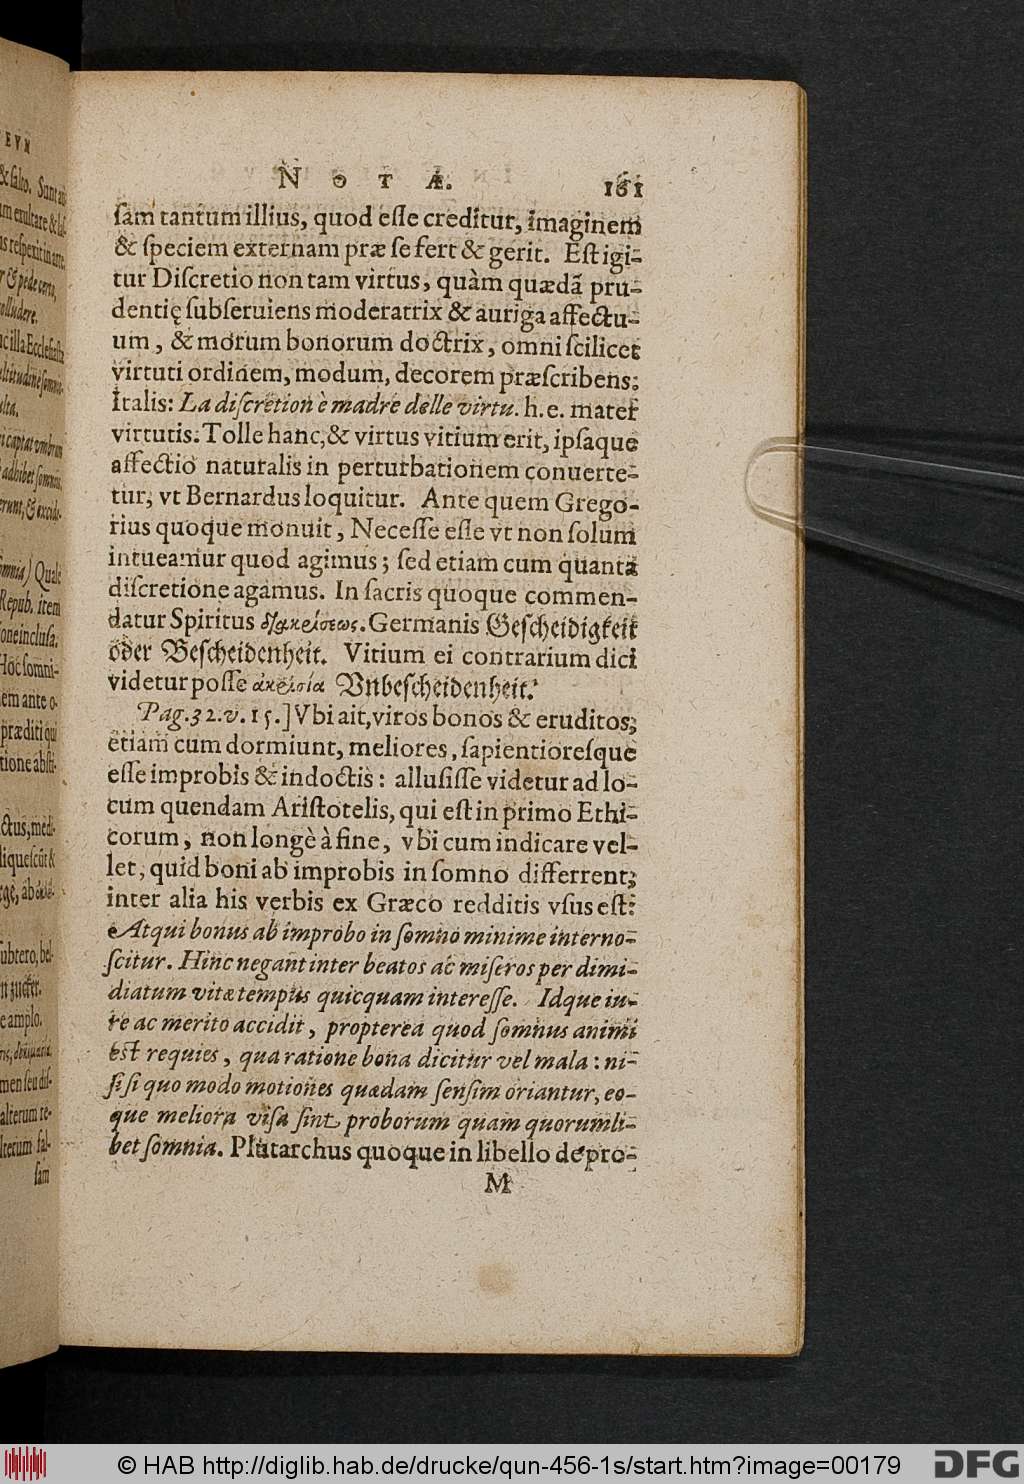 NOTÆ. 161
ſam tantum illius, quod eſſe creditur, imaginem
& ſpeciem externam præ ſe fert & gerit. Eſt igi-
tur Diſcretio non tam virtus, quàm quædã pru-
dentię ſubſeruiens moderatrix & auriga affectu-
um, & morum bonorum doctrix, omni ſcilicet
virtuti ordinem, modum, decorem præſcribens;
Italis: La diſcretion è madre delle virtu. h. e. mater
virtutis. Tolle hanc, & virtus vitium erit, ipſaque
affectio naturalis in perturbationem conuerte-
tur, vt Bernardus loquitur. Ante quem Grego-
rius quoque monuit, Neceſſe eſſe vt non ſolum
intueamur quod agimus; ſed etiam cum quanta
diſcretione agamus. In ſacris quoque commen-
datur Spiritus διακρίσεως. Germanis Geſcheidigkeit
oder Beſcheidenheit. Vitium ei contrarium dici
videtur poſſe ἀκρισία Vnbeſcheidenheit.
Pag. 32. v. 15.] Vbi ait, viros bonos & eruditos,
etiam cum dormiunt, meliores, ſapientioreſque
eſſe improbis & indoctis: alluſiſſe videtur ad lo-
cum quendam Ariſtotelis, qui eſt in primo Ethi-
corum, non longè à fine, vbi cum indicare vel-
let, quid boni ab improbis in ſomno differrent;
inter alia his verbis ex Græco redditis vſus eſt:
Atqui bonus ab improbo in ſomno minime interno-
ſcitur. Hinc negant inter beatos ac miſeros per dimi-
diatum vitæ tempus quicquam intereſſe. Idque iu-
re ac merito accidit, propterea quod ſomnus animi
est requies, qua ratione bona dicitur vel mala: ni-
ſi ſi quo modo motiones quædam ſenſim oriantur, eo-
que meliora viſa ſint proborum quam quorumli-
bet ſomnia. Plutarchus quoque in libello de pro-
M
EVM
& ſalto. Sunt
um exultare &
us reſpexit in
r & pede certo,
olludere.
illa Eccleſiaſt
ulta.
captat vmbram
adhibet ſomniis,
erunt, & excide-
omnia) Quale
Repub. item
one incluſa.
Hoc ſomni-
em ante o-
præditi qui
tione abſti-
ctus, medi-
liqueſcūt &
ubtero, bel-
zucker.
e amplo.
men ſeu diſ-
alterum re-
lterum fal-
ſam
© HAB http://diglib.hab.de/drucke/qun-456-1s/start.htm?image=00179
DFG